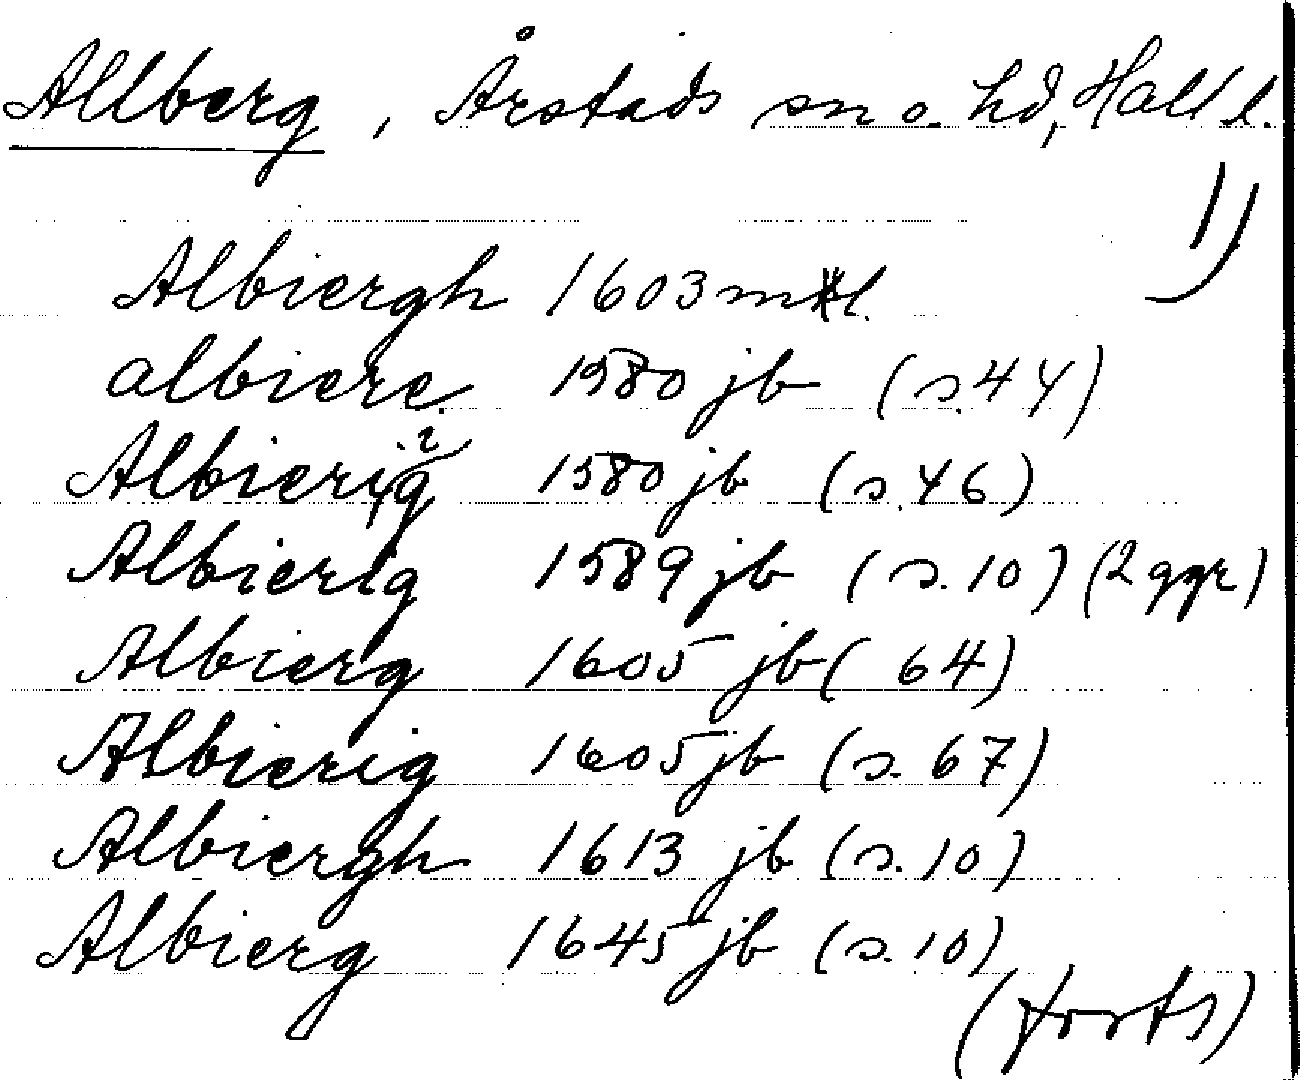 Allberg, Årstads sn o. hd, Hall l.
1)
Albiergh 1603 mtl.
albiere. 1580 jb (s. 44)
Albierig 1580 jb (s. 46)
Albierig 1589 jb (s. 10) (2 ggr)
Albierg 1605 jb ( 64)
Albierig 1605 jb (s. 67)
Albiergh 1613 jb (s. 10)
Albierg 1645 jb (s. 10)
(forts)